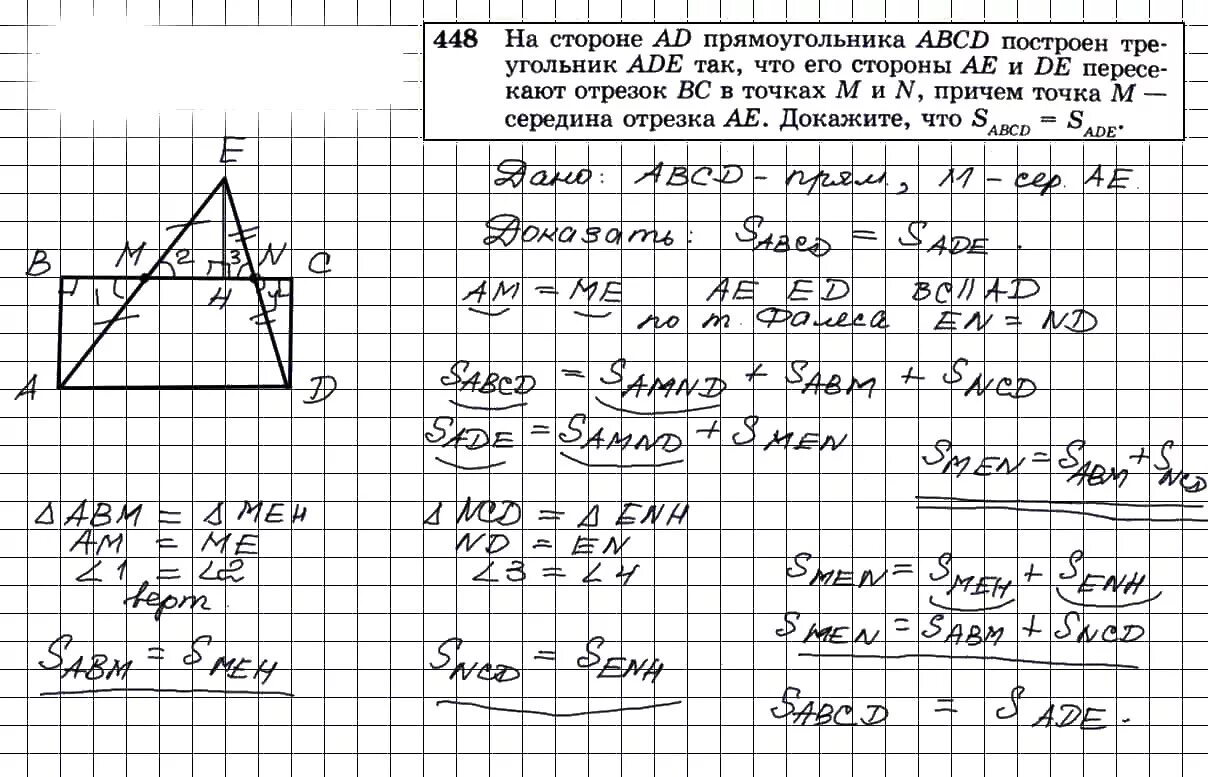 448 На стороне AD прямоугольника ABCD построен тре-
угольник ADE так, что его стороны AE и DE пересе-
кают отрезок BC в точках M и N, причем точка M —
середина отрезка AE. Докажите, что S_ABCD = S_ADE.
E
B M 2 3 N C
1 H 4
A D
Дано: ABCD - прям., M - сер. AE.
Доказать: S_ABCD = S_ADE.
AM = ME AE ED BC // AD
по т. Фалеса EN = ND
S_ABCD = S_AMND + S_ABM + S_NCD
S_ADE = S_AMND + S_MEN
S_MEN = S_ABM + S_NCD
Δ ABM = Δ MEH
AM = ME
∠1 = ∠2
верт.
S_ABM = S_MEH
Δ NCD = Δ ENH
ND = EN
∠3 = ∠4
S_NCD = S_ENH
S_MEN = S_MEH + S_ENH
S_MEN = S_ABM + S_NCD
S_ABCD = S_ADE.